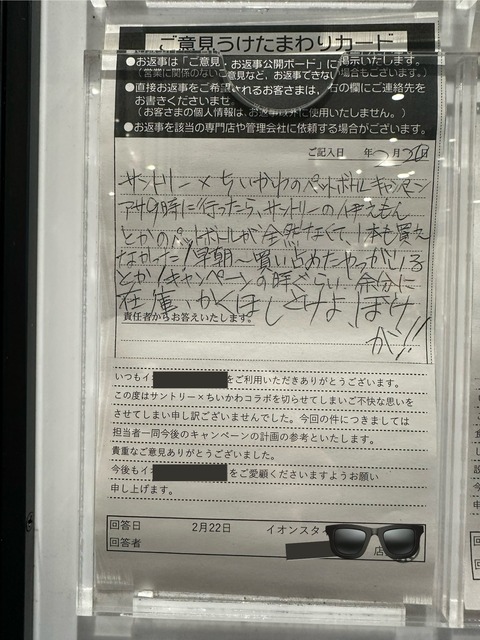 ご意見うけたまわりカード
●お返事は「ご意見・お返事公開ボード」に掲示いたします。
（営業に関係のないご意見など、お返事できない場合もございます。）
●直接お返事をご希望されるお客さまは、右の欄にご連絡先を
お書きくださいませ
（お客さまの個人情報は、お返事以外に使用いたしません。）
●お返事を該当の専門店や管理会社に依頼する場合がございます。
ご記入日 年2月20日
サントリー×ちいかわのペットボトルキャンペーン
アサ9時に行ったら、サントリーの伊えもん
とかのペットボトルが全然なくて、1本も買え
なかった!早朝〜買い占めたやつがいる
とか!キャンペーンの時ぐらい余分に
在庫かくほしとけよ、ぼけ
が!!
責任者からお答えいたします。
いつもイ をご利用いただきありがとうございます。
この度はサントリー×ちいかわコラボを切らせてしまいご不快な思いを
させてしまい申し訳ございませんでした。今回の件につきましては
担当者一同今後のキャンペーンの計画の参考といたします。
貴重なご意見ありがとうございました。
今後もイ をご愛顧くださいますようお願い
申し上げます。
回答日 2月22日 イオンスタ
回答者 店